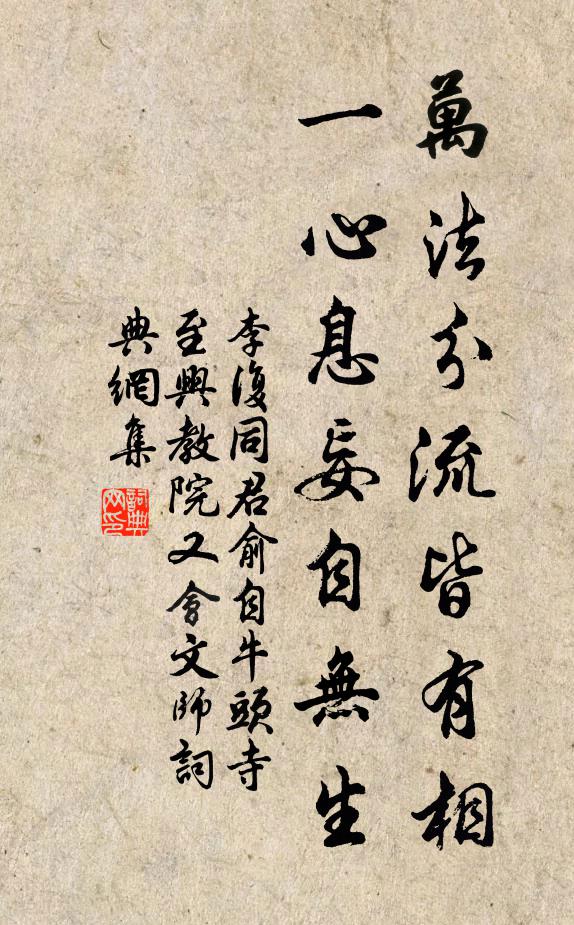 萬法分流皆有相
一心息妄自無生
李復同君俞自牛頭寺
至興教院又會文師詞
典網集
詞典
网印